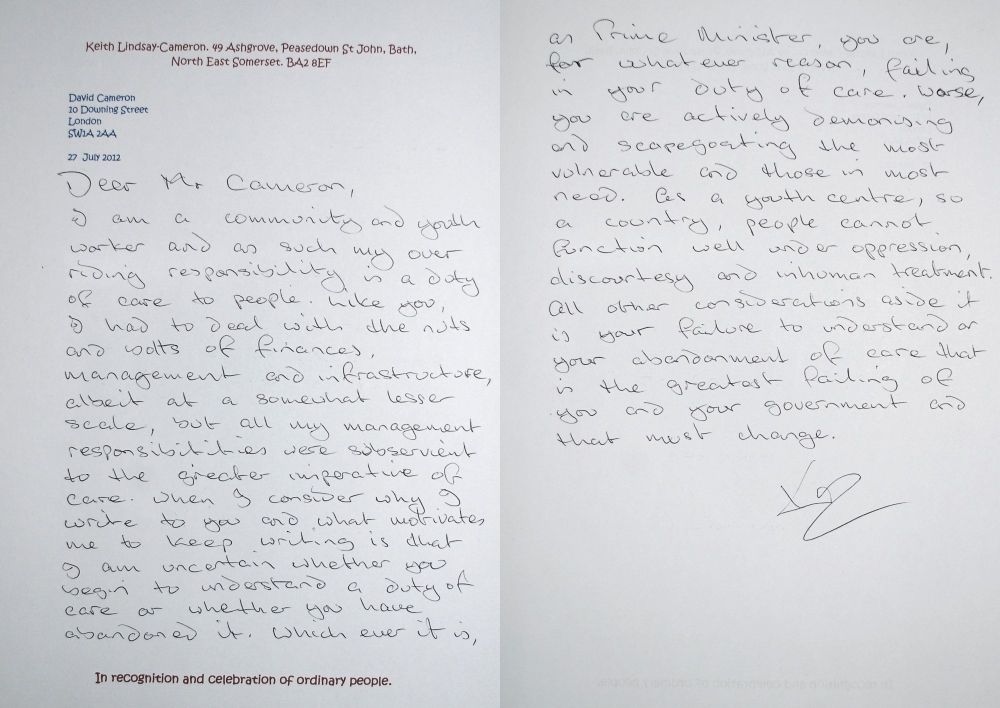 Keith Lindsay-Cameron. 49 Ashgrove, Peasedown St John, Bath,
North East Somerset. BA2 8EF
David Cameron
10 Downing Street
London
SW1A 2AA
27 July 2012
Dear Mr Cameron,
I am a community and youth
worker and as such my over
riding responsibility is a duty
of care to people. Like you,
I had to deal with the nuts
and volts of finances,
management and infrastructure,
albeit at a somewhat lesser
scale, but all my management
responsibilities were subservient
to the greater imperative of
care. When I consider why I
write to you and what motivates
me to keep writing is that
I am uncertain whether you
begin to understand a duty of
care or whether you have
abandoned it. Which ever it is,
In recognition and celebration of ordinary people.
as Prime Minister, you are,
for whatever reason, failing
in your duty of care. Worse,
you are actively demonising
and scapegoating the most
vulnerable and those in most
need. As a youth centre, so
a country, people cannot
function well under oppression,
discourtesy and inhuman treatment.
All other considerations aside it
is your failure to understand or
your abandonment of care that
is the greatest failing of
you and your government and
that must change.